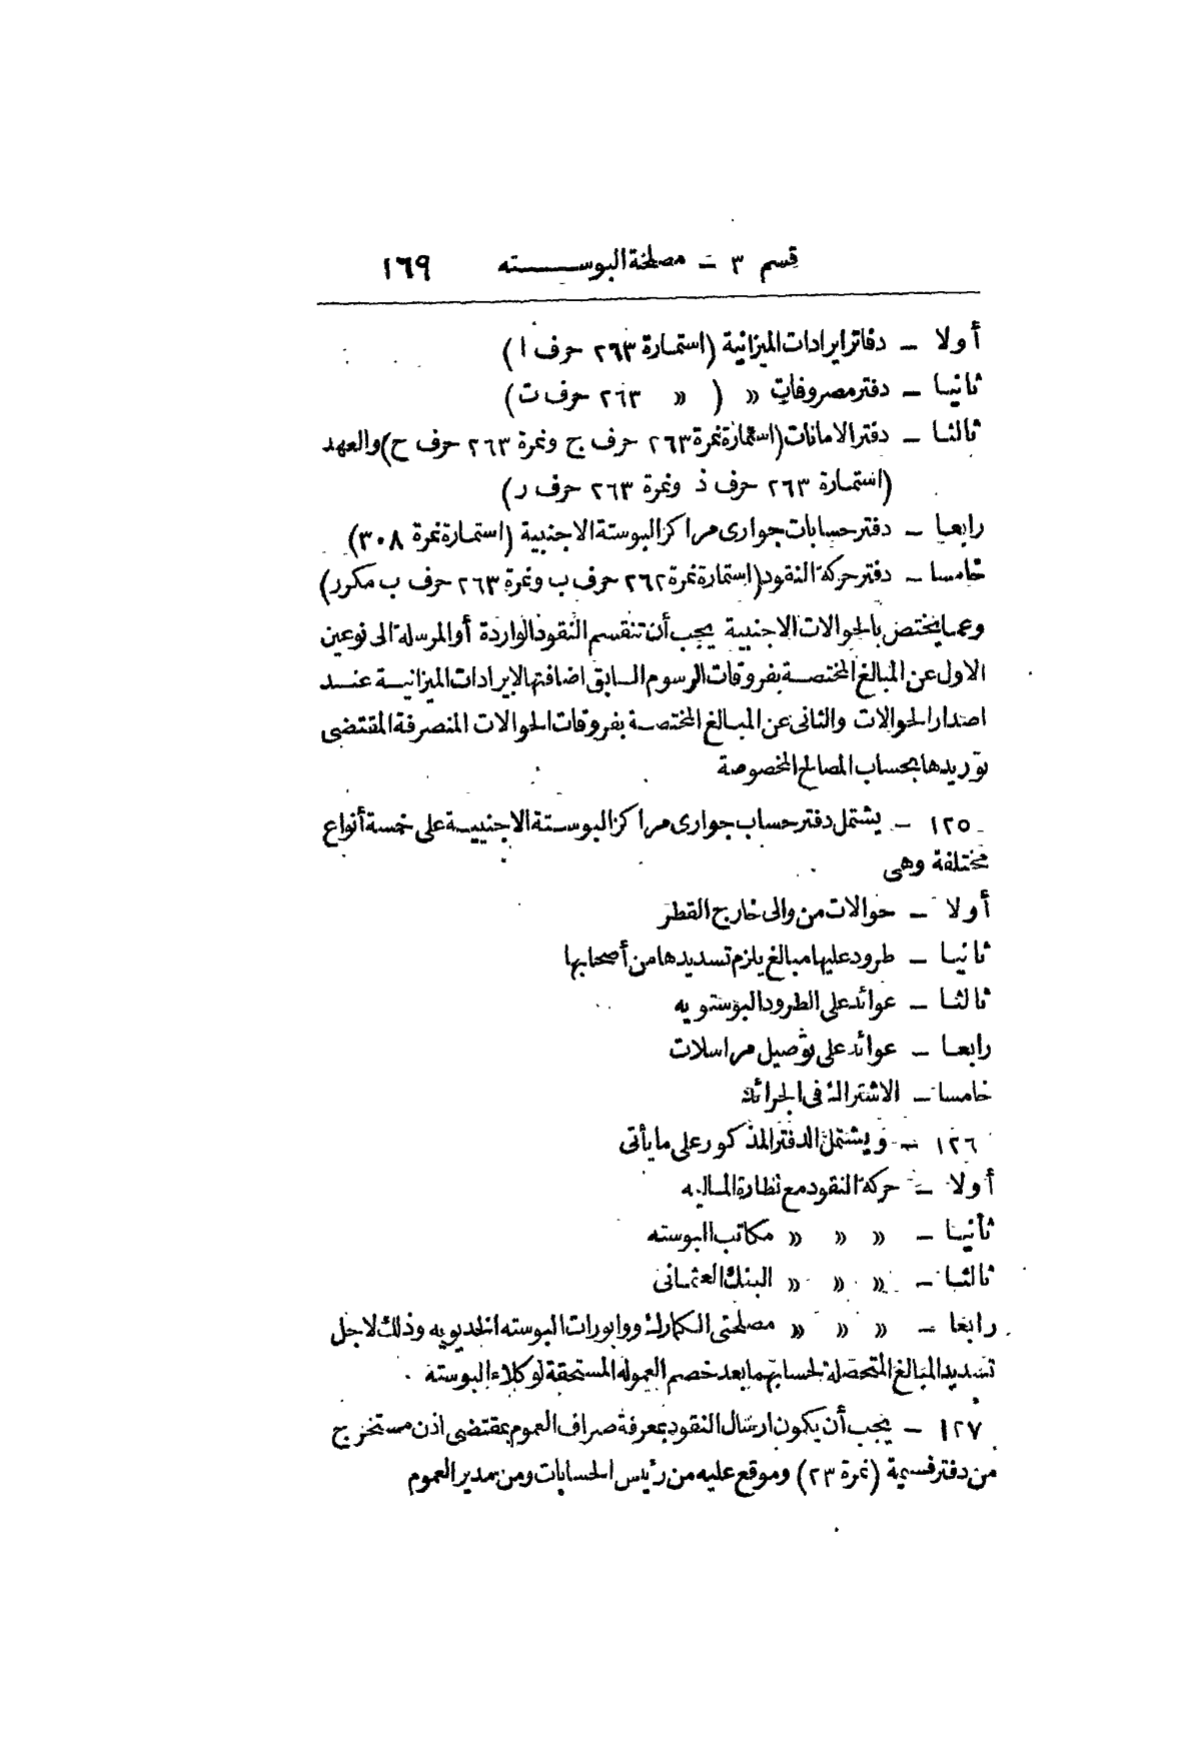 قسم ٣ — مصلحة البوسته ١٦٩
أولا — دفاتر ايرادات الميزانية (استمارة ٢٦٣ حرف ا)
ثانيا — دفتر مصروفات » ( » ٢٦٣ حرف ت)
ثالثا — دفتر الامانات (استمارة نمرة ٢٦٣ حرف ج ونمرة ٢٦٣ حرف ح) والعهد
(استمارة ٢٦٣ حرف ذ ونمرة ٢٦٣ حرف ر)
رابعا — دفتر حسابات جوارى مراكز البوستة الاجنبية (استمارة نمرة ٣٠٨)
خامسا — دفتر حركة النقود (استمارة نمرة ٢٦٢ حرف ب ونمرة ٢٦٣ حرف ب مكرر)
وعما يختص بالحوالات الاجنبية يجب أن تنقسم النقود الواردة أو المرسلة الى نوعين
الاول عن المبالغ المختصة بفروقات الرسوم السابق اضافتها لايرادات الميزانية عند
اصدار الحوالات والثانى عن المبالغ المختصة بفروقات الحوالات المنصرفة المقتضى
توريدها بحساب المصالح المخصوصة
١٢٥ — يشتمل دفتر حساب جوارى مراكز البوستة الاجنبية على خمسة أنواع
مختلفة وهى
أولا — حوالات من والى خارج القطر
ثانيا — طرود عليها مبالغ يلزم تسديدها من أصحابها
ثالثا — عوائد على الطرود البوستويه
رابعا — عوائد على توصيل مراسلات
خامسا — الاشتراك فى الجرائد
١٢٦ — ويشتمل الدفتر المذكور على ما يأتى
أولا — حركة النقود مع نظارة الماليه
ثانيا — » » » مكاتب البوسته
ثالثا — » » » البنك العثمانى
رابعا — » » » مصلحتى الكمارك ووابورات البوسته الخديويه وذلك لاجل
تسديد المبالغ المتحصلة لحسابهما بعد خصم العموله المستحقة لوكلاء البوسته
١٢٧ — يجب أن يكون ارسال النقود بمعرفة صراف العموم بمقتضى اذن مستخرج
من دفتر قسيمة (نمرة ٢٣) وموقع عليه من رئيس الحسابات ومن مدير العموم